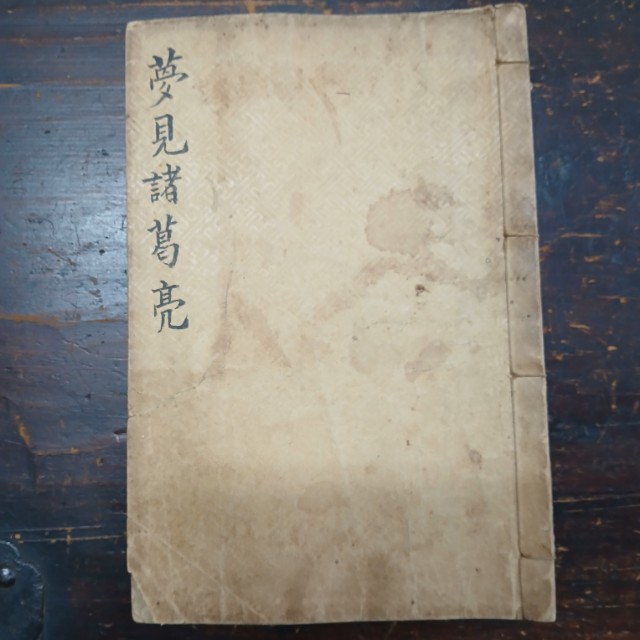 夢見諸葛亮